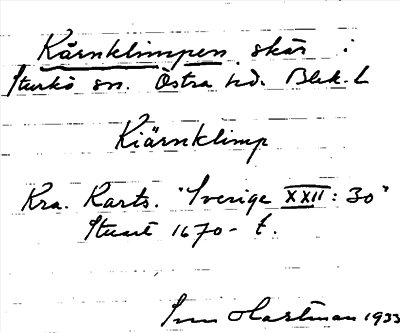 Kärnklimpen skär i
Sturkö sn. Östra hd. Blek. L
Kiärnklimp
Kra. Karts. "Sverige XXII: 30"
Stuart 1670-t.
Sven Hartman 1933